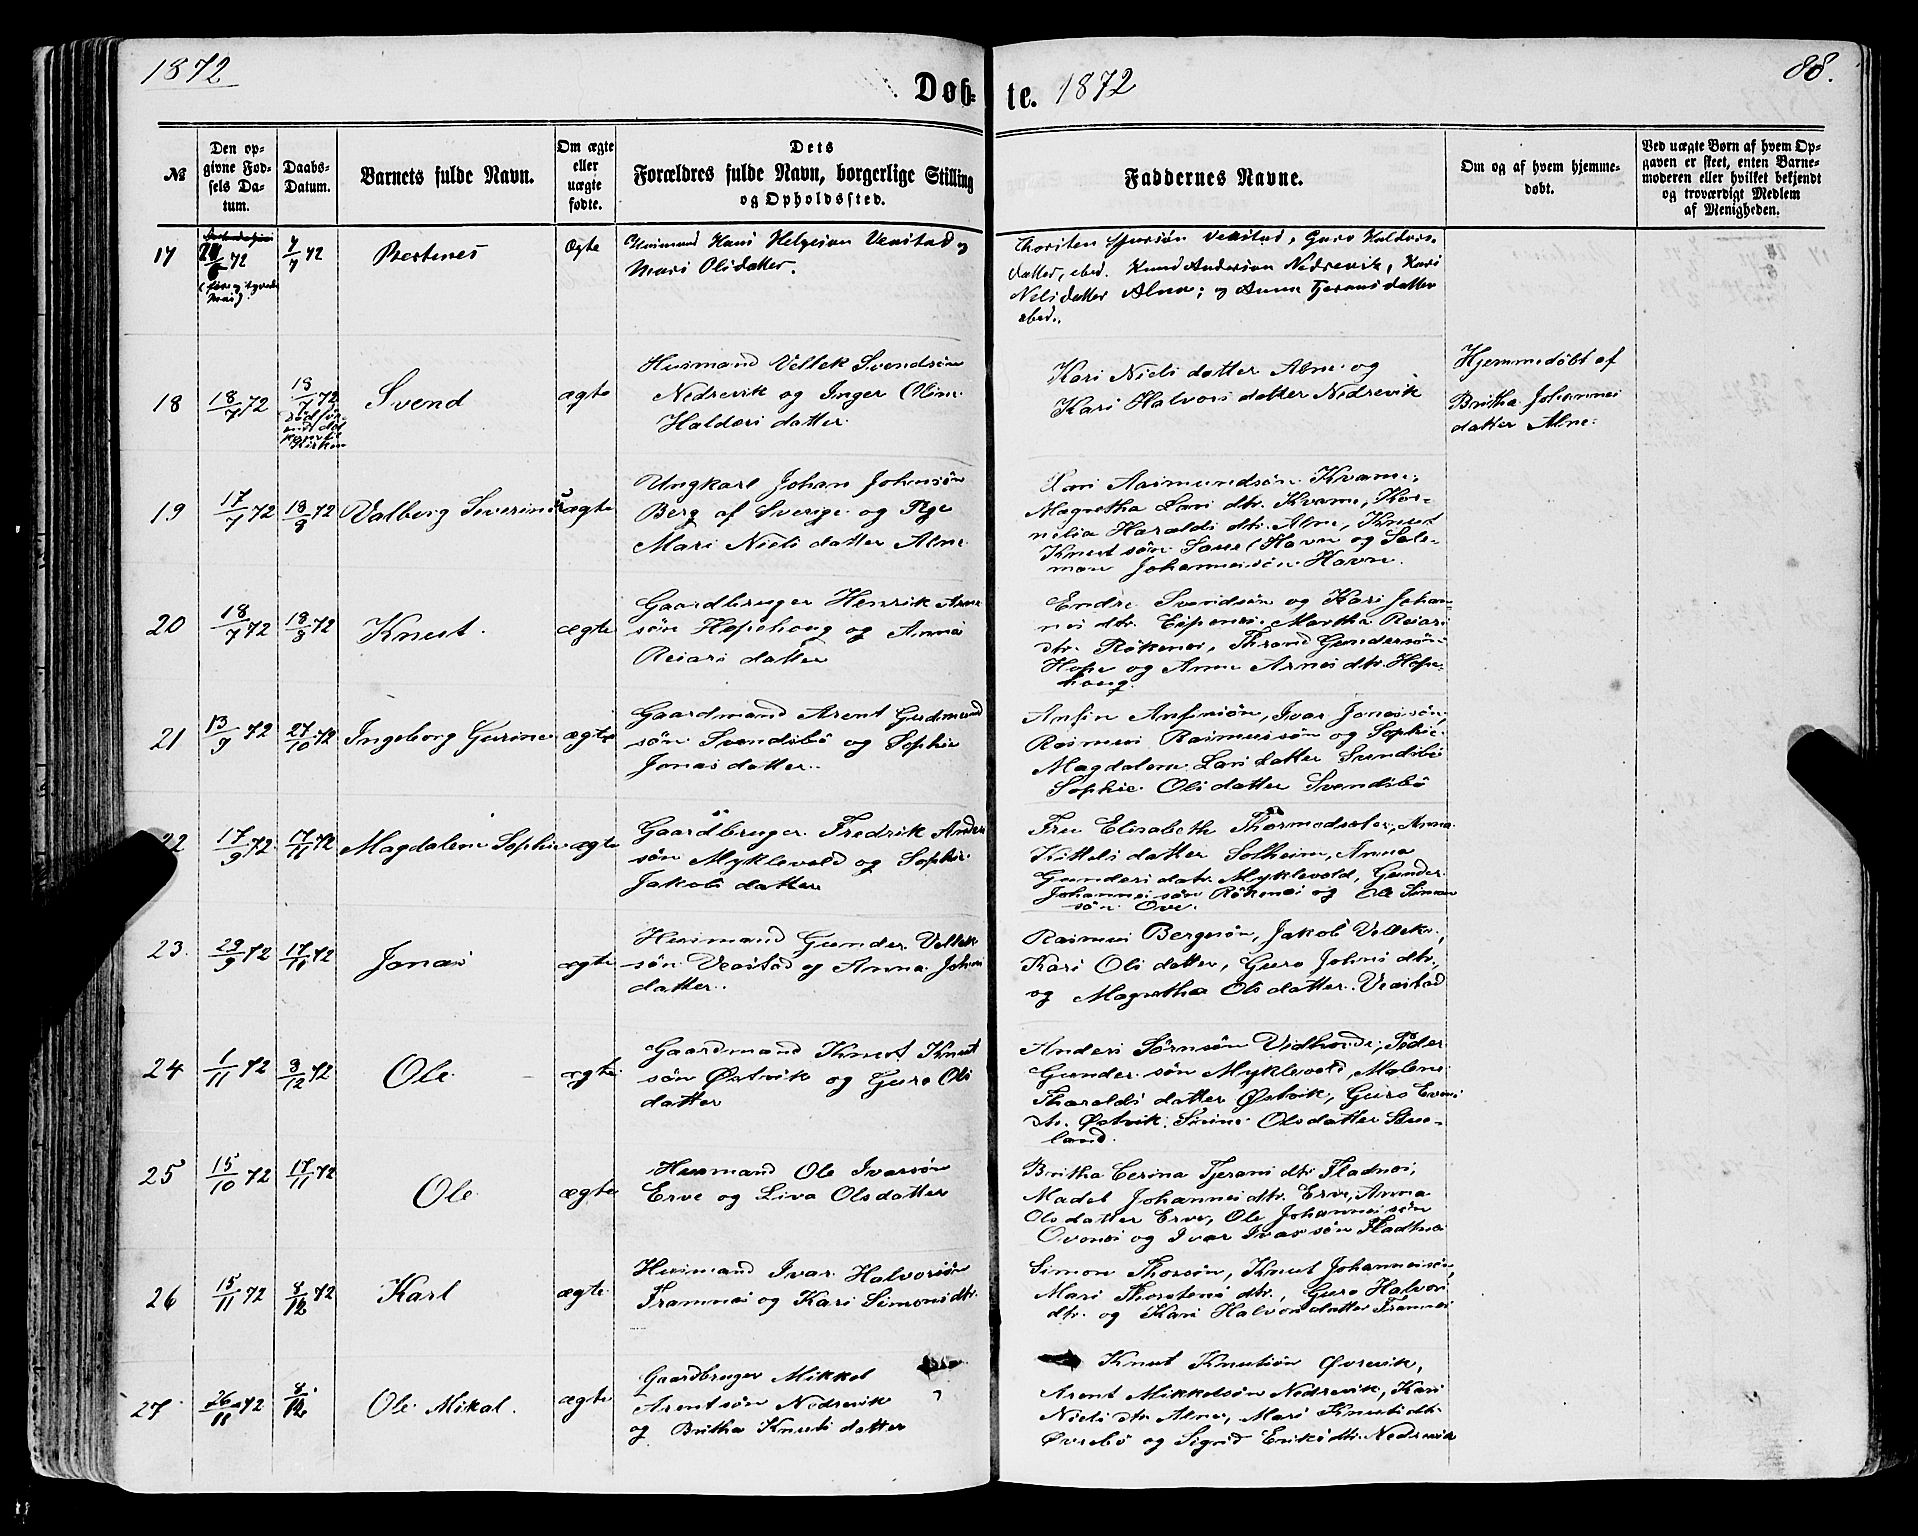 1872
Døb-
te. 1872
88.
№
Den op-
givne Fød-
sels Da-
tum.
Daabs-
Datum.
Barnets fulde Navn.
Om ægte
eller
uægte
fødte.
Dets
Forældres fulde Navn, borgerlige Stilling
og Opholdssted.
Faddernes Navne.
Om og af hvem hjemme-
døbt.
Ved uægte Børn af hvem Op-
gaven er skeet, enten Barne-
moderen eller hvilket bekjendt
og troværdigt Medlem
af Menigheden.
17
72
7/7 72
Ægte
Huusmand Hans Helgesøn Veastad og
Mari Olsdatter.
Thorsten Sjursøn Veastad, Guro Haldors-
datter, ebed. Knud Andersøn Nedrevik, Kari
Nelsdatter Alne; og Anna Tjeransdatter
ebed.
18
18/7 72
18/7 72
Svend
ægte
Husmand Vellek Svendsøn
Nedrevik og Inger
Haldors datter.
Kari Niels datter Alne og
Kari Halvors datter Nedrevik
Hjemmedøbt af
Britha Johannes
datter Alne.
19
17/7 72
18/8 72
Valborg Severine
uægte
Ungkarl Johan Johnsøn
Berg af Sverige og Pige
Mari Niels datter Alne
Lars Rasmundsøn Kvame,
Magretha Lars dtr. Kvame, Kor-
nelia Haralds dtr. Alne, Knut
Knut søn Havn og Sale-
mon Johannessøn Havn.
20
18/7 72
18/8 72
Knut.
ægte
Gaardbruger Henrik Arne
søn Hopehoug og Anna
Reiars datter
Endre Svendsøn og Kari Johan-
nes dtr. Eipenes. Martha Reiars
dtr. Røkenes, Thrond Gundersøn
Hope og Anne Arnes dtr. Hope-
houg.
21
13/9 72
27/10 72
Ingeborg Gurine
ægte
Gaardmand Arent Gudmund
søn Svendsbø og Sophie
Jonas datter.
Anfin Anfinsøn, Ivar Jonassøn,
Rasmus Rasmussøn og Sophie
Magdalene Lars datter Svendsbø
Sophie Ols datter Svendsbø
22
17/9 72
17/11 72
Magdalene Sophie
ægte
Gaardbruger Fredrik Ander
søn Myklevold og Sophie
Jakobs datter
Fru Elisabeth Thormodsæter, Anna
Kittels datter Solheim, Anna
Gunders datr. Myklevold, Gunder
Johannes søn Røkenes og Ole Simon
søn Ove.
23
29/9 72
17/11 72
Jonas
ægte
Husmand Gunder Vellek
søn Veastad og Anna Johns
datter.
Rasmus Bergesøn, Jakob Velleks.,
Kari Ols datter, Guro Johns dtr,
og Magretha Olsdatter Veastad
24
1/11 72
8/12 72
Ole
ægte
Gaardmand Knut Knut
søn Østvik og Guro Ols
datter
Anders Sørnsøn Vidhovde, Peder
Gunder søn Myklevold, Malene
Tharalds datter Østvik, Guro Evens
dtr. Østvik. Sirine Olsdatter
land.
25
15/10 72
17/11 72
Ole
ægte
Husmand Ole Ivarsøn
Erve og Liva Olsdatter
Britha Cerina Tjerans dtr Fladnes,
Madel Johannes dtr. Erve, Anna
Olsdatter Erve, Ole Johannes søn
Ovenes og Ivar Ivar søn Fladnes
26
15/11 72
8/12 72
Karl
ægte
Husmand Ivar Halvorsøn
Framnes og Kari Simons dtr.
Simon Thorsøn, Knut Johannessøn,
Mari Thorstens dtr., Guro Halvors
dtr. og Kari Halvorsdatter Framnes
27
26/11 72
8/12
Ole Mikal.
ægte
Gaardbruger Mikkel
Arentsøn Nedrevik
og Britha Knuts datter
Knut Knutsøn Øvrevik,
Arent Mikkelsøn Nedrevik, Kari
Niels dtr Alne, Mari Knuts dtr.
Øvrebø og Sigrid Eriks dtr. Nedrevik